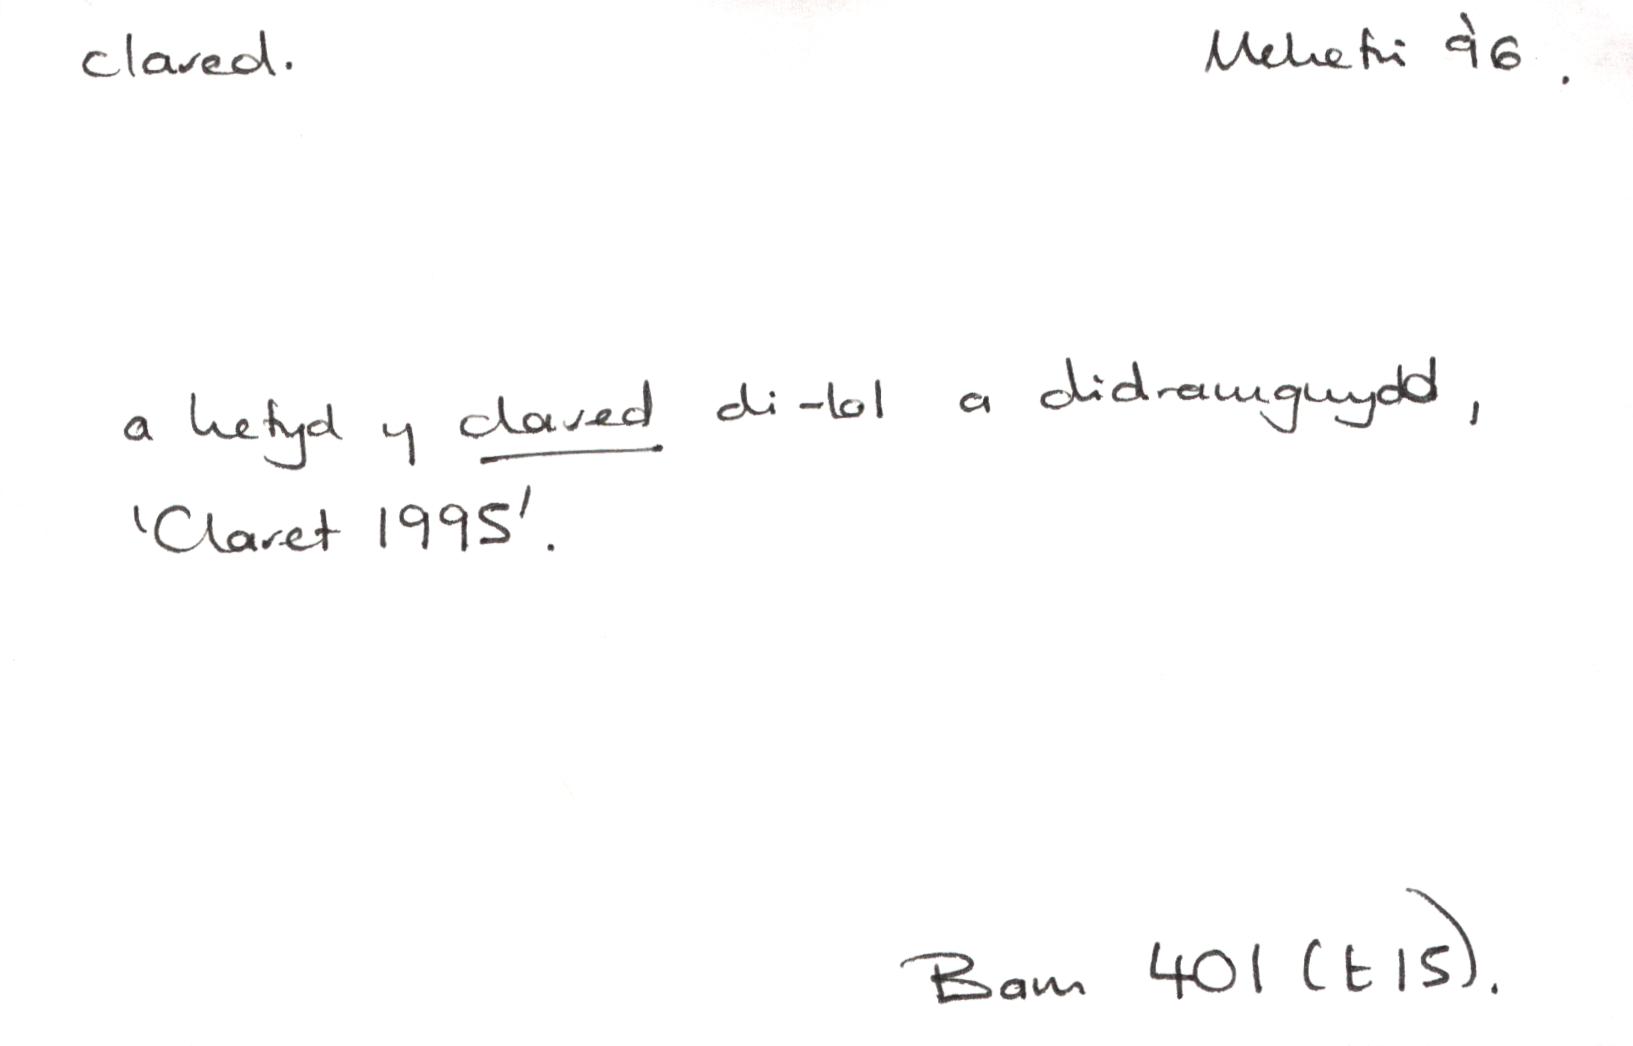 clared. Mehefin '96.
a hefyd y clared di-lol a didramgwydd,
'Claret 1995'.
Barn 401 (t 15).